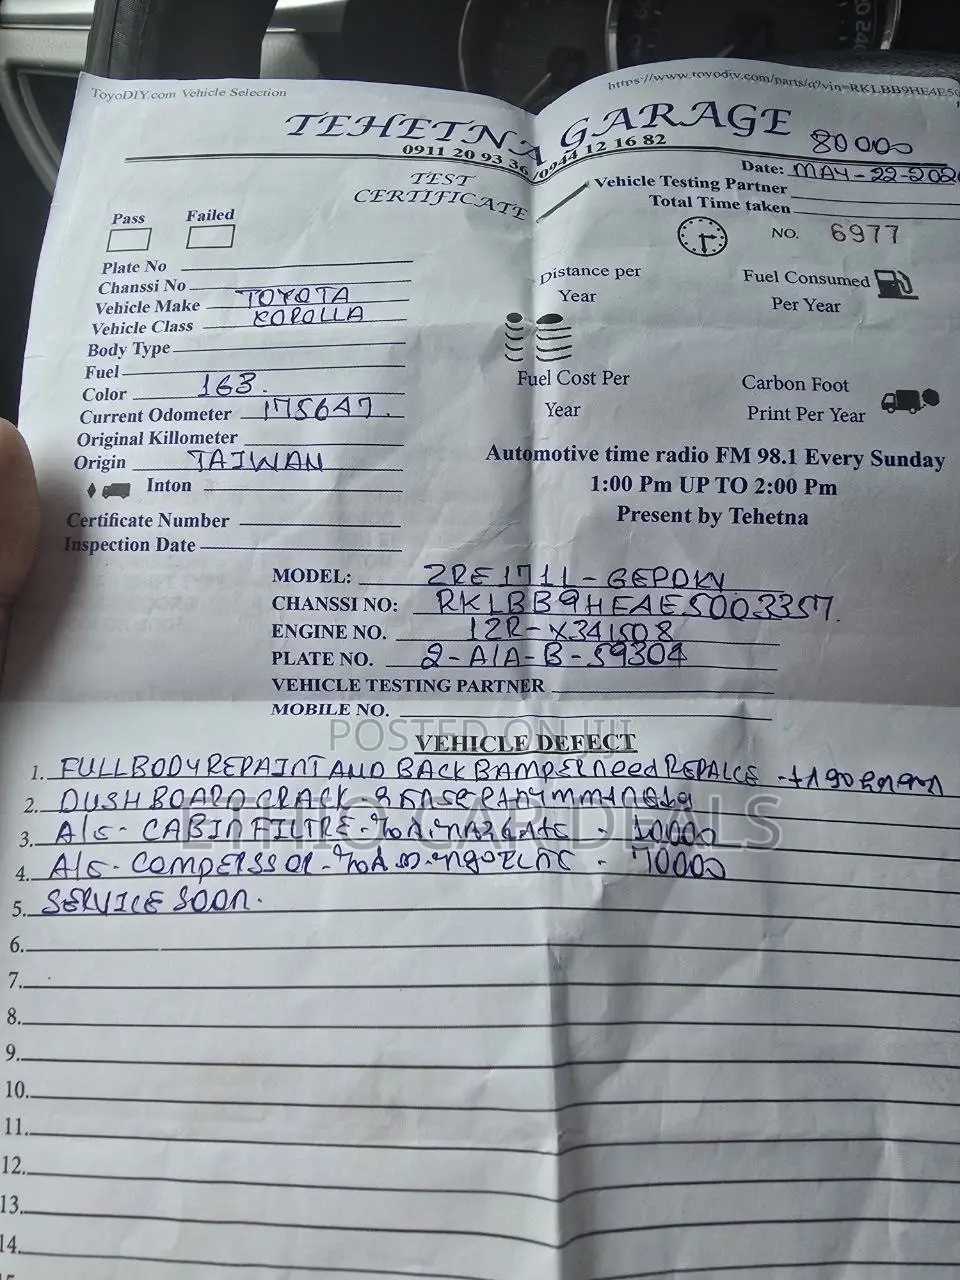 ToyoDIY.com Vehicle Selection
https://www.toyodiy.com/parts/q?vin=RKLBB9HE4E50
TEHETNA GARAGE
80000
0911 20 93 36 /0944 12 16 82
Date: MAY-22-202
TEST
CERTIFICATE
Vehicle Testing Partner
Total Time taken
Pass Failed
NO. 6977
Plate No
Chanssi No
Vehicle Make TOYOTA
Vehicle Class COROLLA
Body Type
Fuel
Color 163.
Current Odometer 175647.
Original Killometer
Origin TAIWAN
Inton
Certificate Number
Inspection Date
Distance per
Year
Fuel Consumed
Per Year
Fuel Cost Per
Year
Carbon Foot
Print Per Year
Automotive time radio FM 98.1 Every Sunday
1:00 Pm UP TO 2:00 Pm
Present by Tehetna
MODEL: ZRE171L-GEPDKV
CHANSSI NO: RKLBB9HEAE5003357.
ENGINE NO. 12R-X341508
PLATE NO. 2-A/A-B-59304
VEHICLE TESTING PARTNER
MOBILE NO.
POSTED ON JIJI
VEHICLE DEFECT
1. FULL BODY REPAINT AND BACK BAMPER need REPALCE
2. DUSH BOARD CRACK
ETHIO CAR DEALS
3. A/C- CABIN FILTRE - 10000
4. A/C- COMPERSSOR - 70000
5. SERVICE SOON.
6.
7.
8.
9.
10.
11.
12.
13.
14.